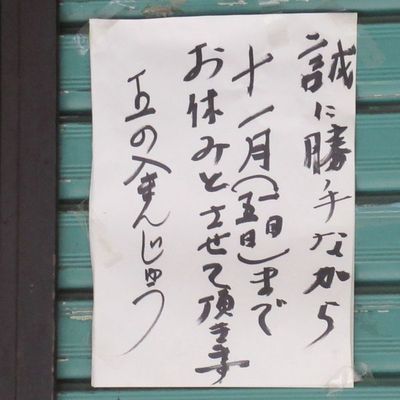 誠に勝手なから
十一月(一日五日)まで
お休みとさせて頂きます
五の入まんじゅう